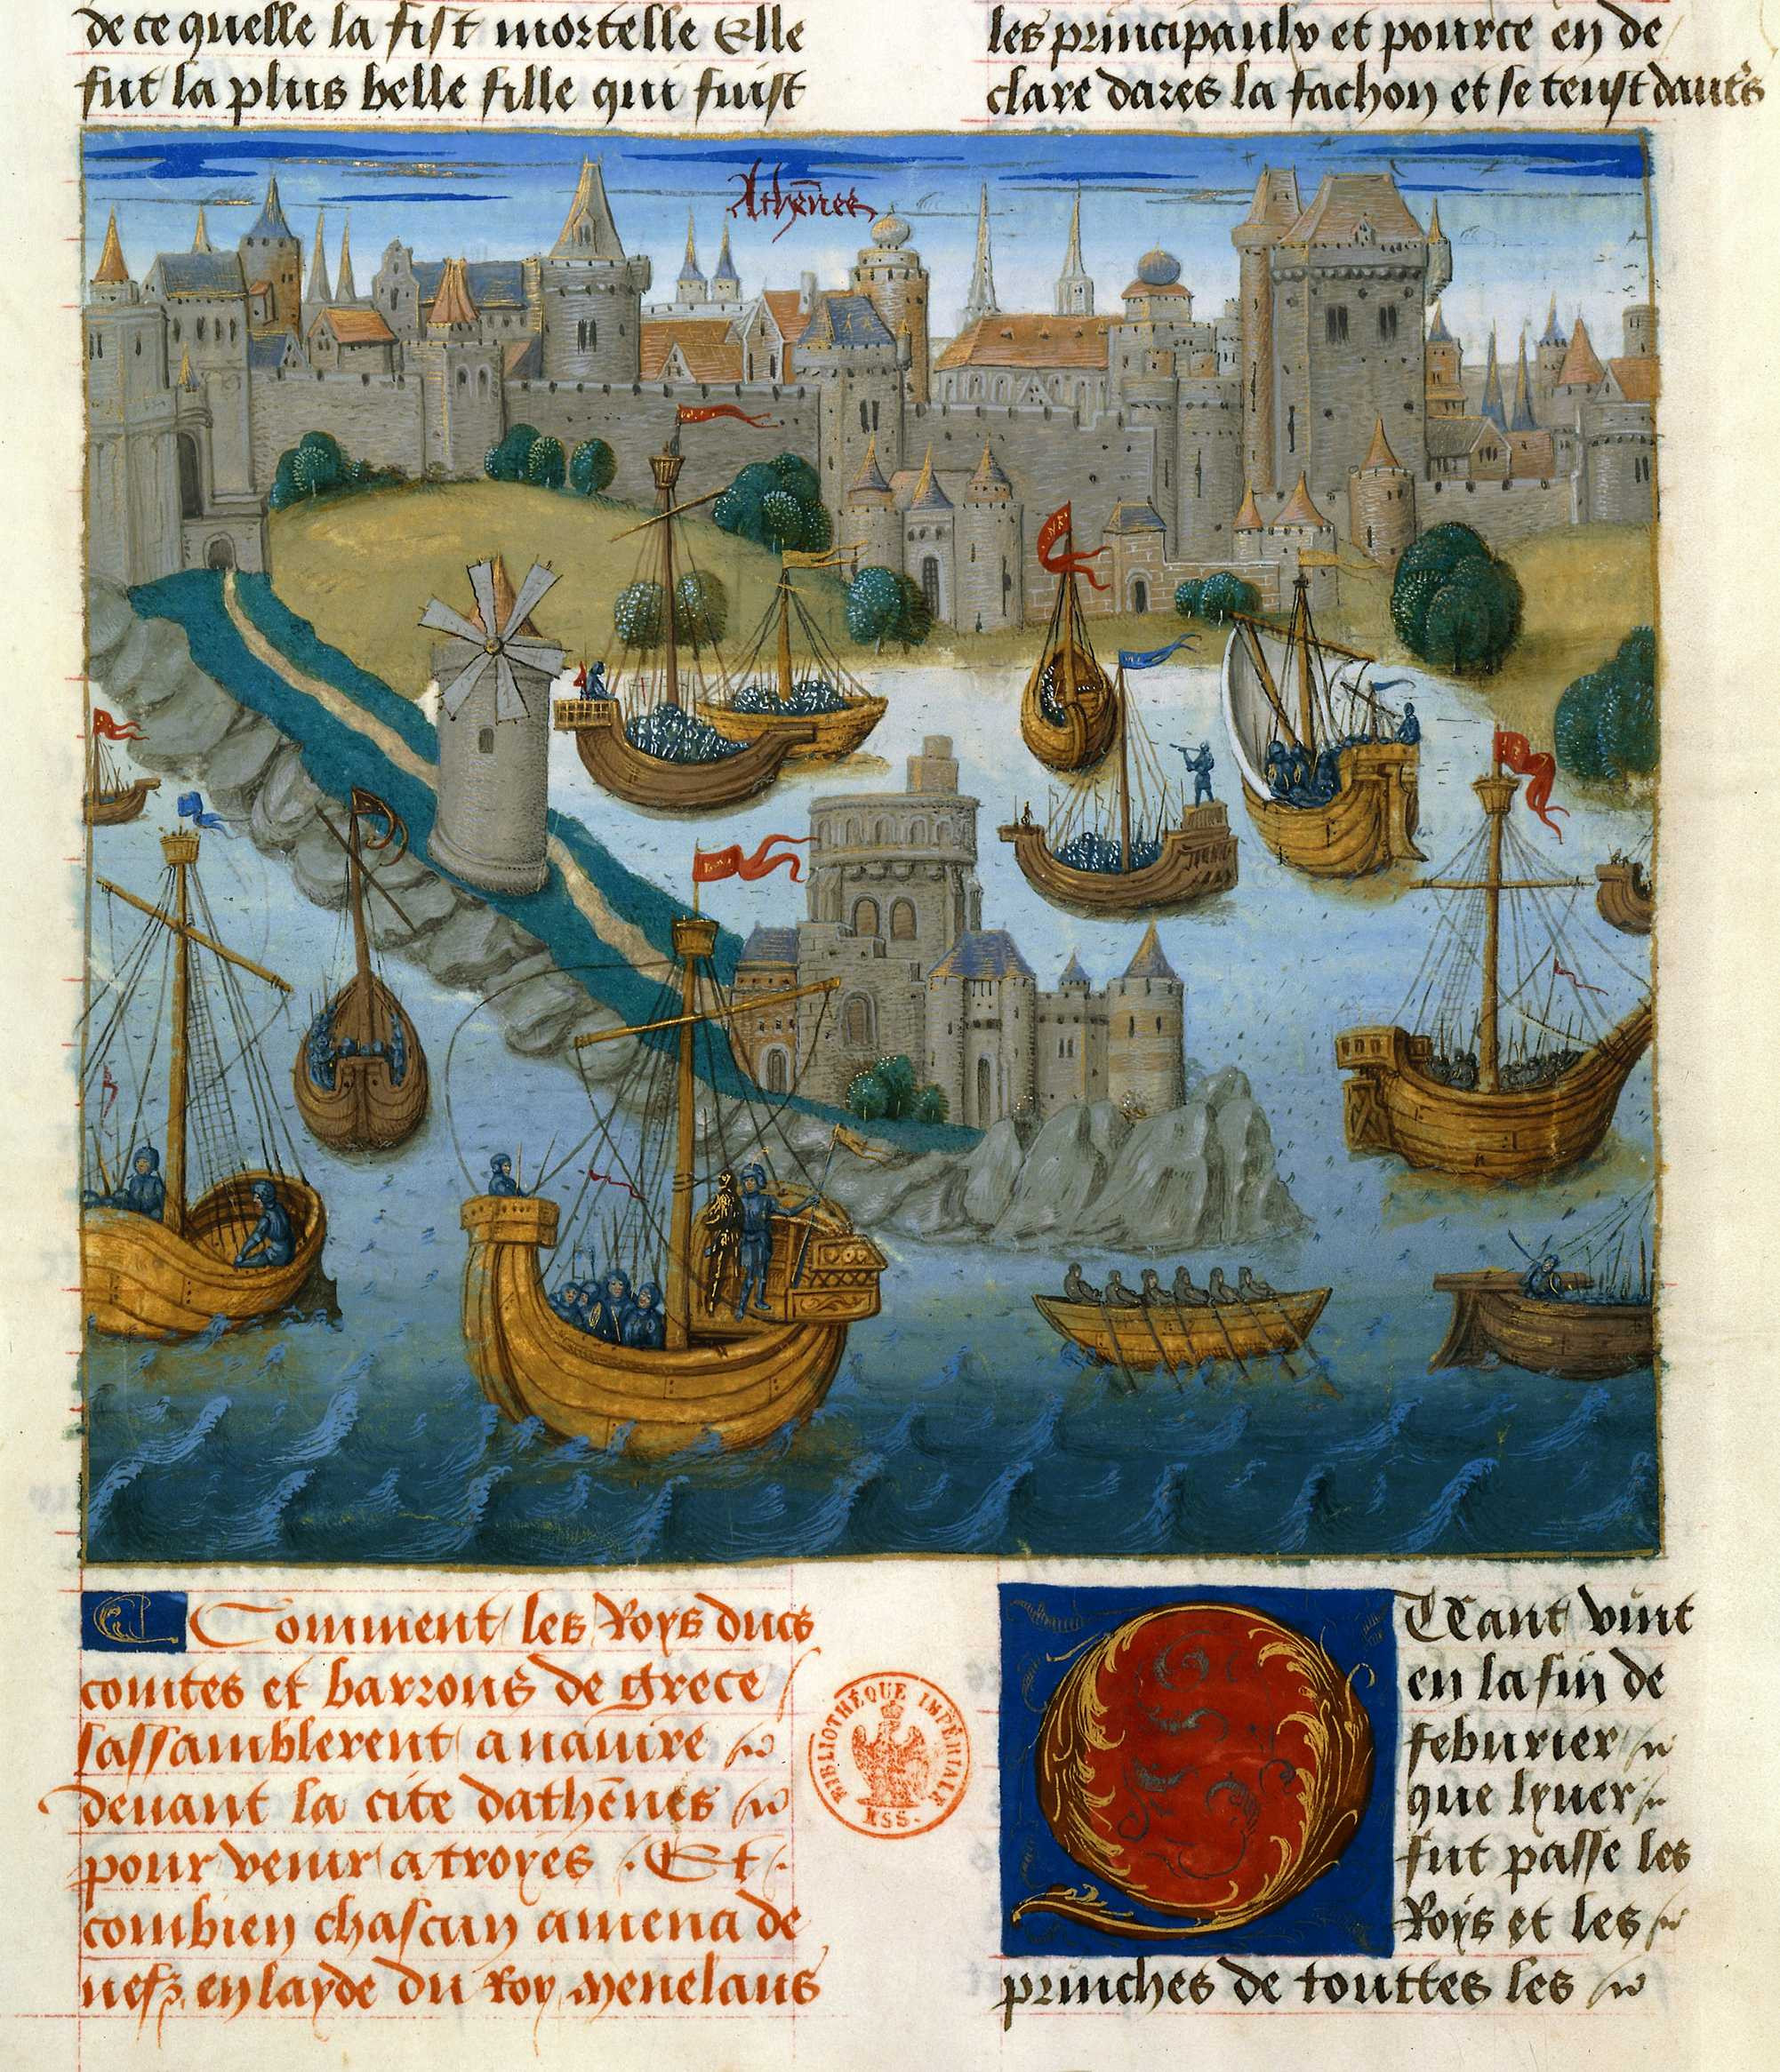 de ce quelle la fist mortelle Elle
fut la plus belle fille qui fuist
les principaulx et pource en de
clare dares la fachon et se teust dautrs
Athēnes
Comment les Roys ducs
comtes et barrons de grece
sassamblerent a nauire
deuant la cite dathēnes
pour venir a troyes . Et .
combien chascun amena de
nefz en layde du Roy menelaus
BIBLIOTHÈQUE IMPÉRIALE
MSS.
QUant vint
en la fin de
feburier
que lyuer
fut passe les
Roys et les
prinches de touttes les